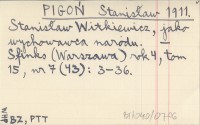 PIGOŃ Stanisław 1911.
Stanisław Witkiewicz, jako
wychowawca narodu.
Sfinks (Warszawa) rok 4, tom
15, nr 7 (43): 3-36.
BZ, PTT